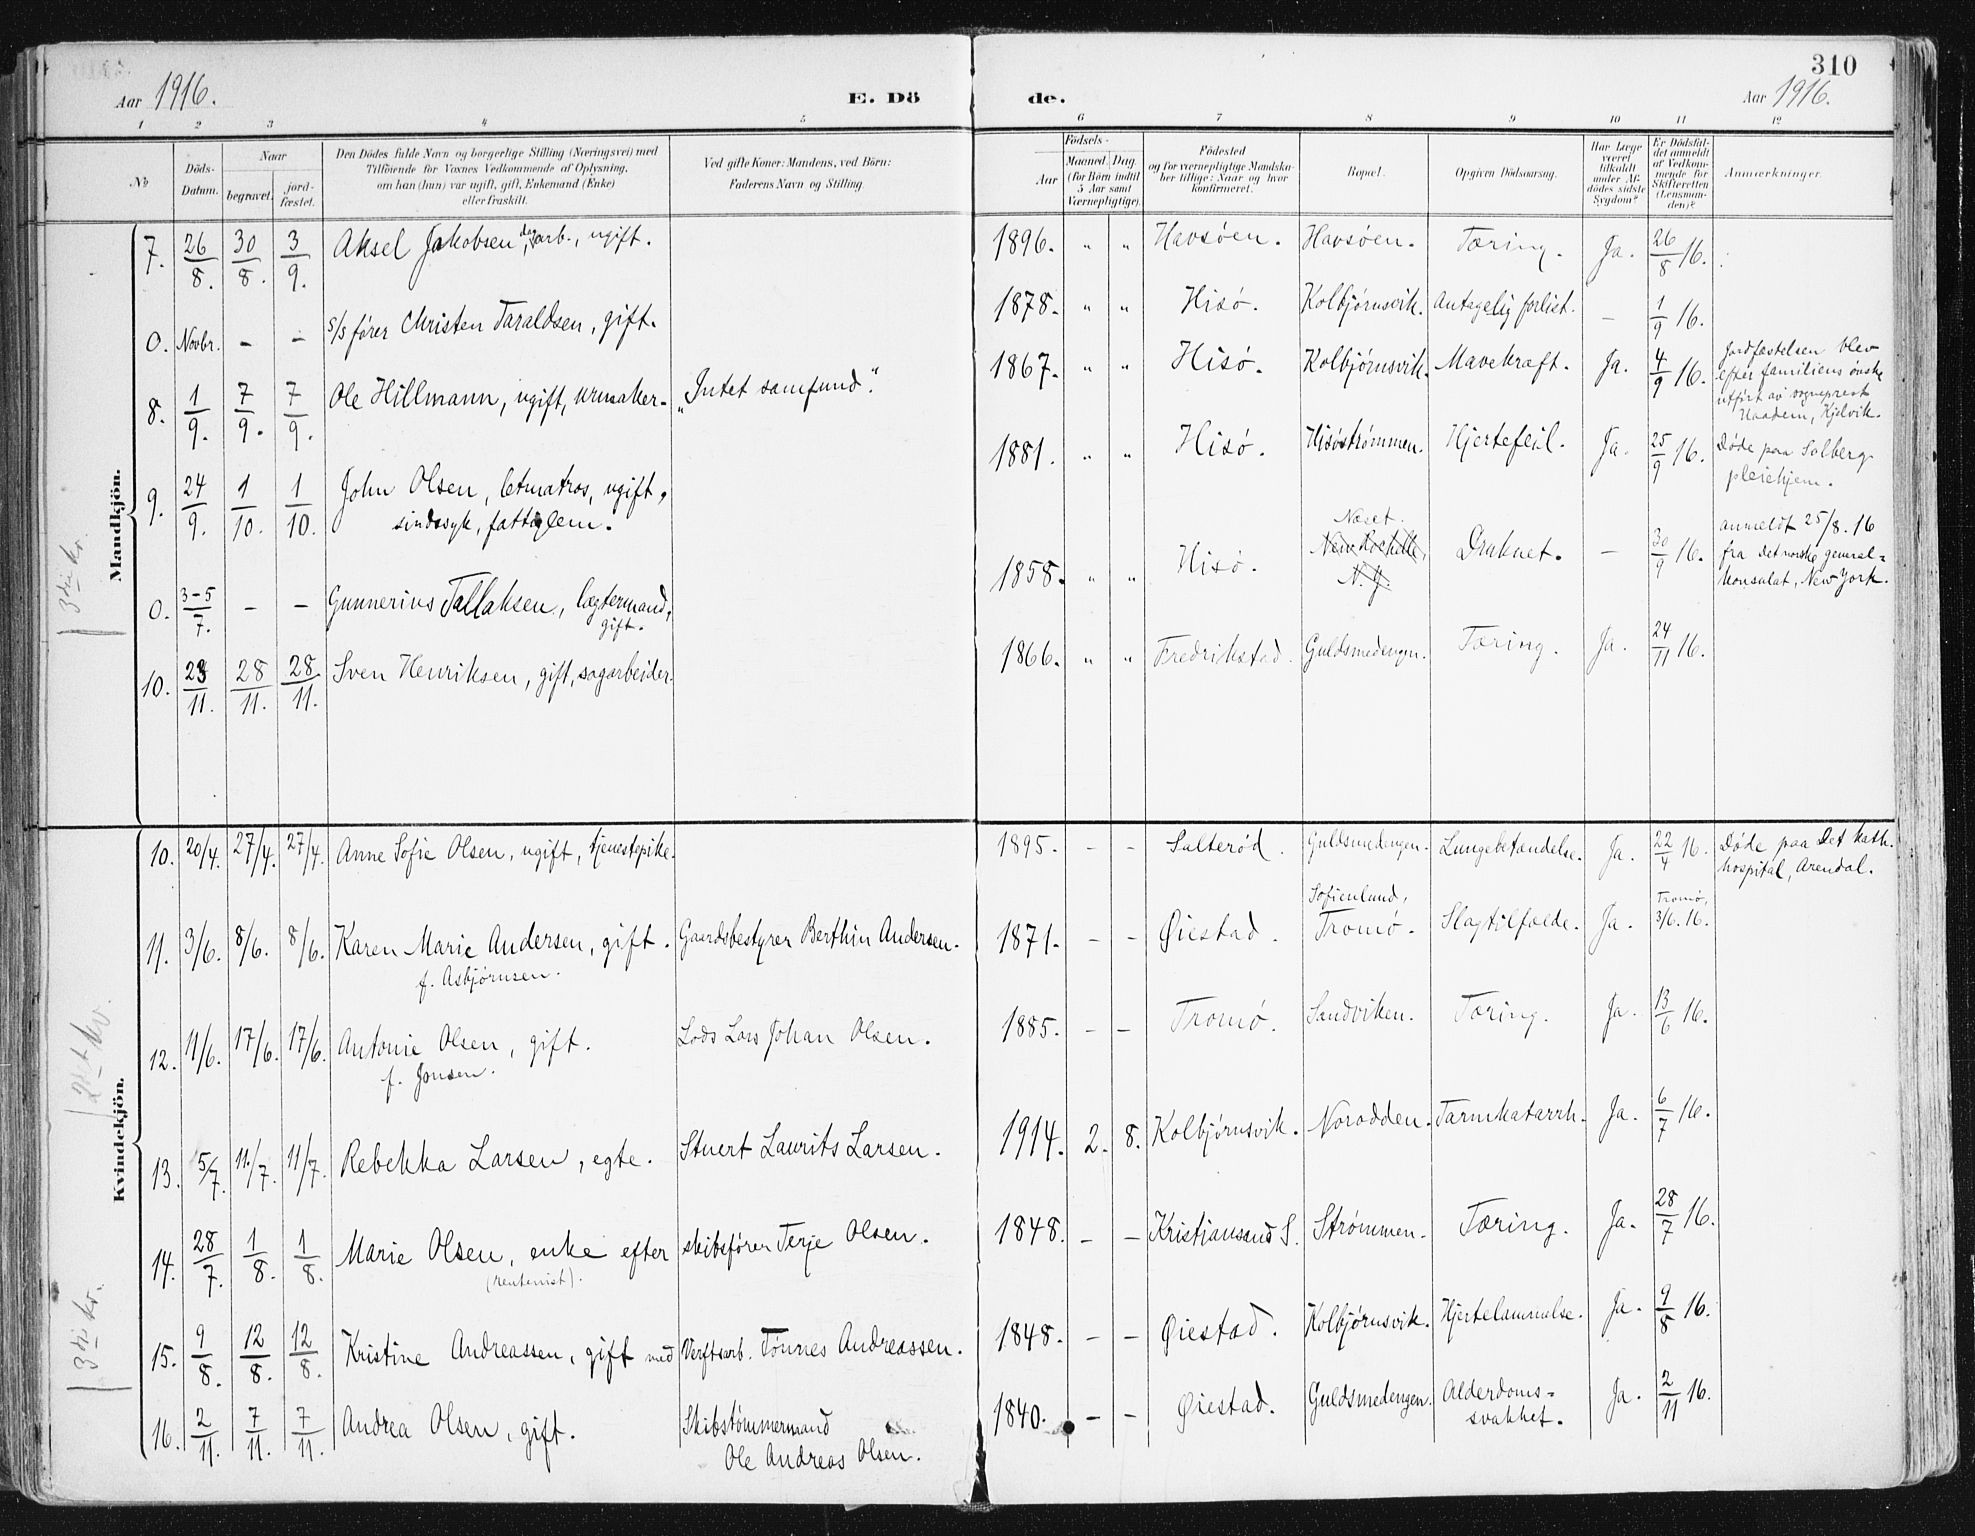 310
Aar 1916. E. Dö de. Aar 1916.
1 2 3 4 5 6 7 8 9 10 11 12
No Döds-Datum. Naar begravet. jord-fæstet. Den Dödes fulde Navn og borgerlige Stilling (Næringsvei) med Tilföiende for Voxnes Vedkommende af Oplysning, om han (hun) var ugift, gift, Enkemand (Enke) eller fraskilt. Ved gifte Koner: Mandens, ved Börn: Faderens Navn og Stilling. Födsels- Aar Maaned. Dag. (for Börn indtil 5 Aar samt Værnepligtige). Födested og for værnepligtige Mandskaber tillige: Naar og hvor konfirmeret. Bopæl. Opgiven Dödsaarsag. Har Læge været tilkaldt under Afdödes sidste Sygdom? Er Dödsfaldet anmeldt af Vedkommende for Skifteretten (Lensmanden)? Anmærkninger.
Mandkjön.
7. 26/8. 30/8. 3/9. Aksel Jakobsen, dagarb., ugift. 1896. " " Havsøen. Havsøen. Tæring. Ja. 26/8 16.
0. Novbr. – – s/s fører Christen Taraldsen, gift. 1878. " " Hisø. Kolbjørnsvik. Antagelig forlist. – 1/9 16.
8. 1/9. 7/9. 7/9. Ole Hillmann, ugift, urmaker. "Intet samfund". 1867. " " Hisø. Kolbjørnsvik. Mavekræft. Ja. 4/9 16. Jordfæstelsen blev
efter familiens ønske
utført av sogneprest
Naadem, Kjelvik.
9. 24/9. 1/10. 1/10. John Olsen, letmatros, ugift, 1881. " " Hisø. Hisøstrømmen. Hjertefeil. Ja. 25/9 16. Døde paa Solberg
sindssyk, fattiglem. pleiehjem.
0. 3-5/7. – – Gunnerius Tallaksen, lægtermand, 1858. " " Hisø. Næset. Druknet. – 30/9 16. anmeldt 25/8. 16
gift. New Rochelle, N.Y. fra det norske general-
konsulat, New York.
10. 23/11. 28/11. 28/11. Sven Henriksen, gift, sagarbeider. 1866. " " Fredrikstad. Guldsmedengen. Tæring. Ja. 24/11 16.
3die kv.
Kvindekjön.
10. 20/4. 27/4. 27/4. Anne Sofie Olsen, ugift, tjenestepike. 1895. – – Salterød. Guldsmedengen. Lungebetændelse. Ja. 22/4 16. Døde paa Det kath.
hospital, Arendal.
11. 3/6. 8/6. 8/6. Karen Marie Andersen, gift. Gaardsbestyrer Berthin Andersen. 1871. – – Øiestad. Sofienlund, Tromø. Slagtilfælde. Ja. Tromø, 3/6. 16.
f. Asbjørnsen.
12. 11/6. 17/6. 17/6. Antonie Olsen, gift. Lods Lars Johan Olsen. 1885. – – Tromø. Sandviken. Tæring. Ja. 13/6 16.
f. Jonsen.
2det kv.
13. 5/7. 11/7. 11/7. Rebekka Larsen, egte. Stuert Laurits Larsen. 1914. 2. 8. Kolbjørnsvik. Norodden. Tarmkatarrh. Ja. 6/7 16.
14. 28/7. 1/8. 1/8. Marie Olsen, enke efter skibsfører Terje Olsen. 1848. – – Kristiansand S. Strømmen. Tæring. Ja. 28/7 16.
(rentenist).
15. 9/8. 12/8. 12/8. Kristine Andreassen, gift med Verftsarb. Tønnes Andreassen. 1848. – – Øiestad. Kolbjørnsvik. Hjertelammelse. Ja. 9/8 16.
3die kv.
16. 2/11. 7/11. 7/11. Andrea Olsen, gift. Skibstømmermand 1840. – – Øiestad. Guldsmedengen. Alderdoms- Ja. 2/11 16.
Ole Andreas Olsen. svakhet.